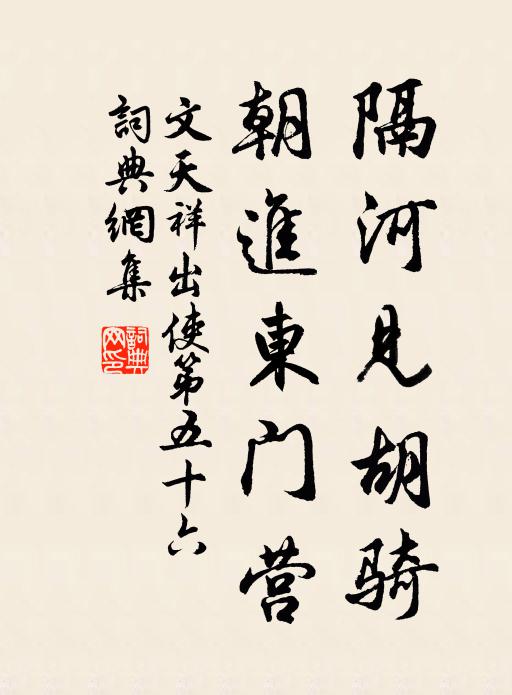 隔河見胡騎
朝進東门营
文天祥出使第五十六
詞典網集
詞典
网印